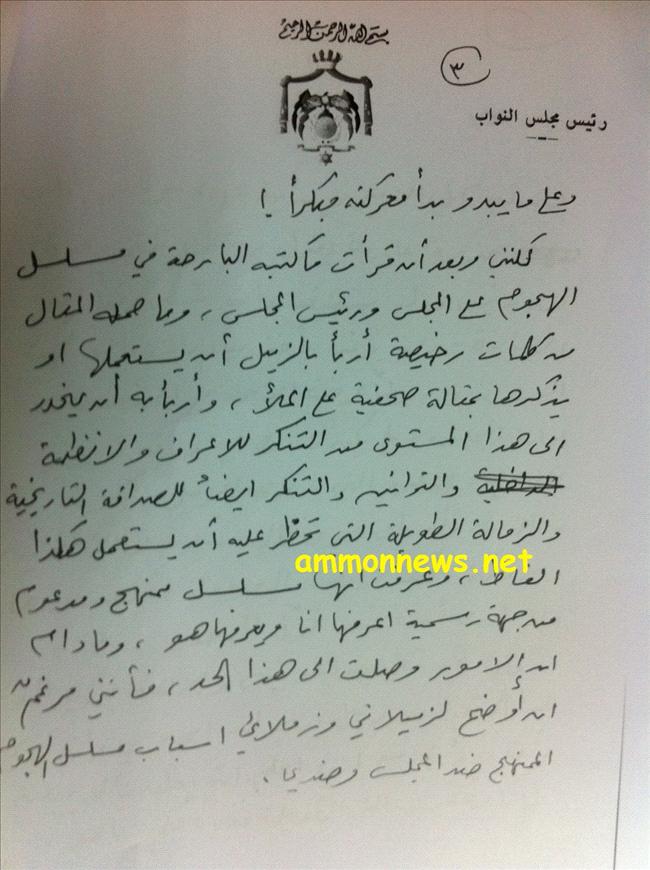 بسم الله الرحمن الرحيم
٣
رئيس مجلس النواب
وعلى ما يبدو بدأ معركته مبكراً !
لكنني وبعد أن قرأت ما كتبه البارحة في مسلسل
الهجوم على المجلس ورئيس المجلس ، وما حمله المقال
من كلمات رخيصة أربأ بالزميل أن يستعملها او
يذكرها بمقالة صحفية على الملأ ، وأربأ به أن ينحدر
الى هذا المستوى من التنكر للاعراف والانظمة
الداخلية والقوانين والتنكر ايضاً للصداقة التاريخية
والزمالة الطويلة التي تحظّر عليه أن يستعمل هكذا
ammonnews.net
الفاظ ، وعرفت انها مسلسل ممنهج ومدعوم
من جهة رسمية اعرفها انا ويعرفها هو ، وما دام
ان الامور وصلت الى هذا الحد ، فأنني مرغم
ان أوضح لزميلاتي وزملائي اسباب مسلسل الهجوم
الممنهج ضد المجلس وضدي .